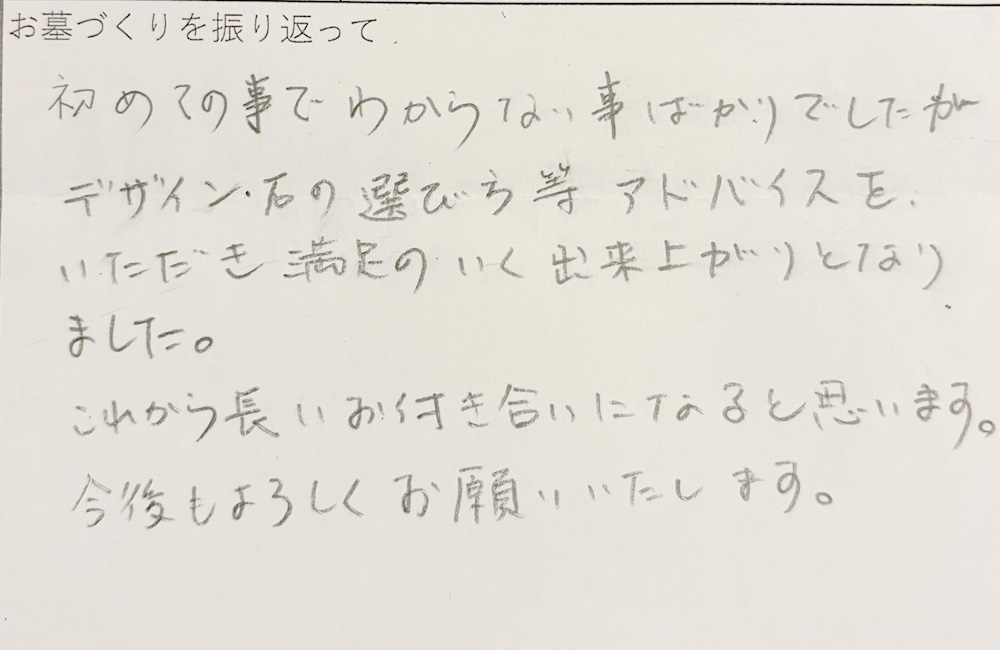 お墓づくりを振り返って
初めての事でわからない事ばかりでしたが
デザイン・石の選び方等アドバイスを
いただき満足のいく出来上がりとなり
ました。
これから長いお付き合いになると思います。
今後もよろしくお願いいたします。